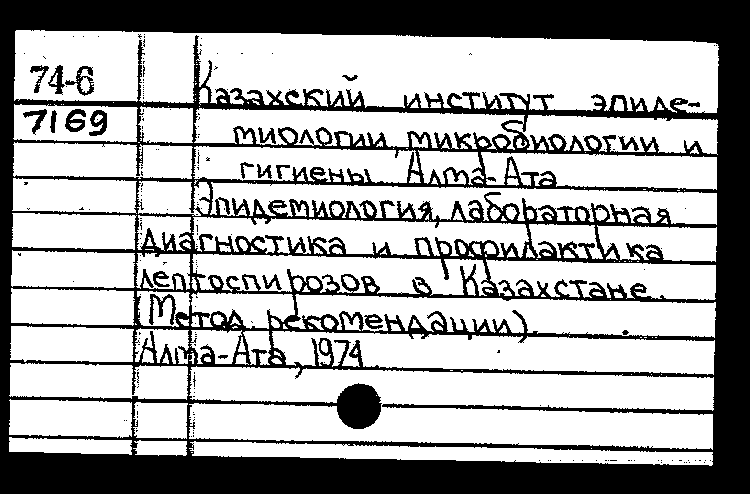 74-6
7169
Казахский институт эпиде-
миологии, микробиологии и
гигиены Алма-Ата
Эпидемиология, лабораторная
диагностика и профилактика
лептоспирозов в Казахстане.
(Метод. рекомендации).
Алма-Ата, 1974